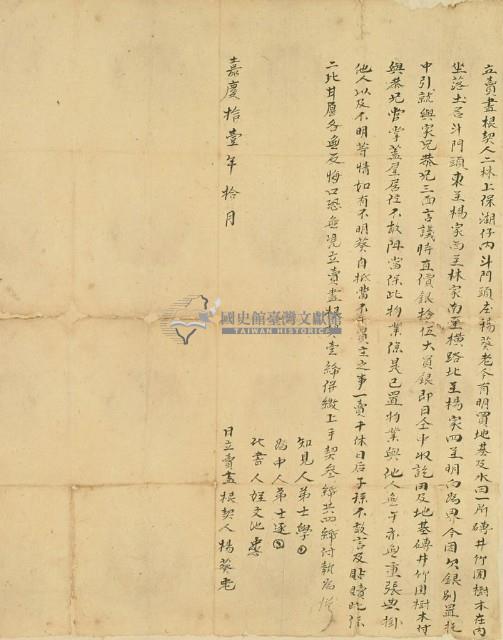 立賣盡根契人二林上保湖仔內斗門頭庄楊葵老今有明買地基及水田一所磚井竹圍樹木在內
坐落土名斗門頭東至楊家西至林家南至橫路北至楊家四至明白為界今因欠銀別置托
中引就與家兄恭兄三面言議時直價銀拾伍大員銀即日仝中收訖田及地基磚井竹圍樹木付
與恭兄官掌蓋屋居住不敢阻當保此物業係是已置物業與他人無干亦無重張典掛
他人以及不明等情如有不明葵自抵當不干買主之事一賣千休日后子孫不敢言及貼贖此係
二比甘愿各無反悔口恐無憑立賣盡根契壹紙併繳上手契叁紙共四紙付執為炤
知見人弟士學
為中人弟士遠
代書人姪文池
嘉慶拾壹年拾月 日立賣盡根契人楊葵老
國史館臺灣文獻館
TAIWAN HISTORICA